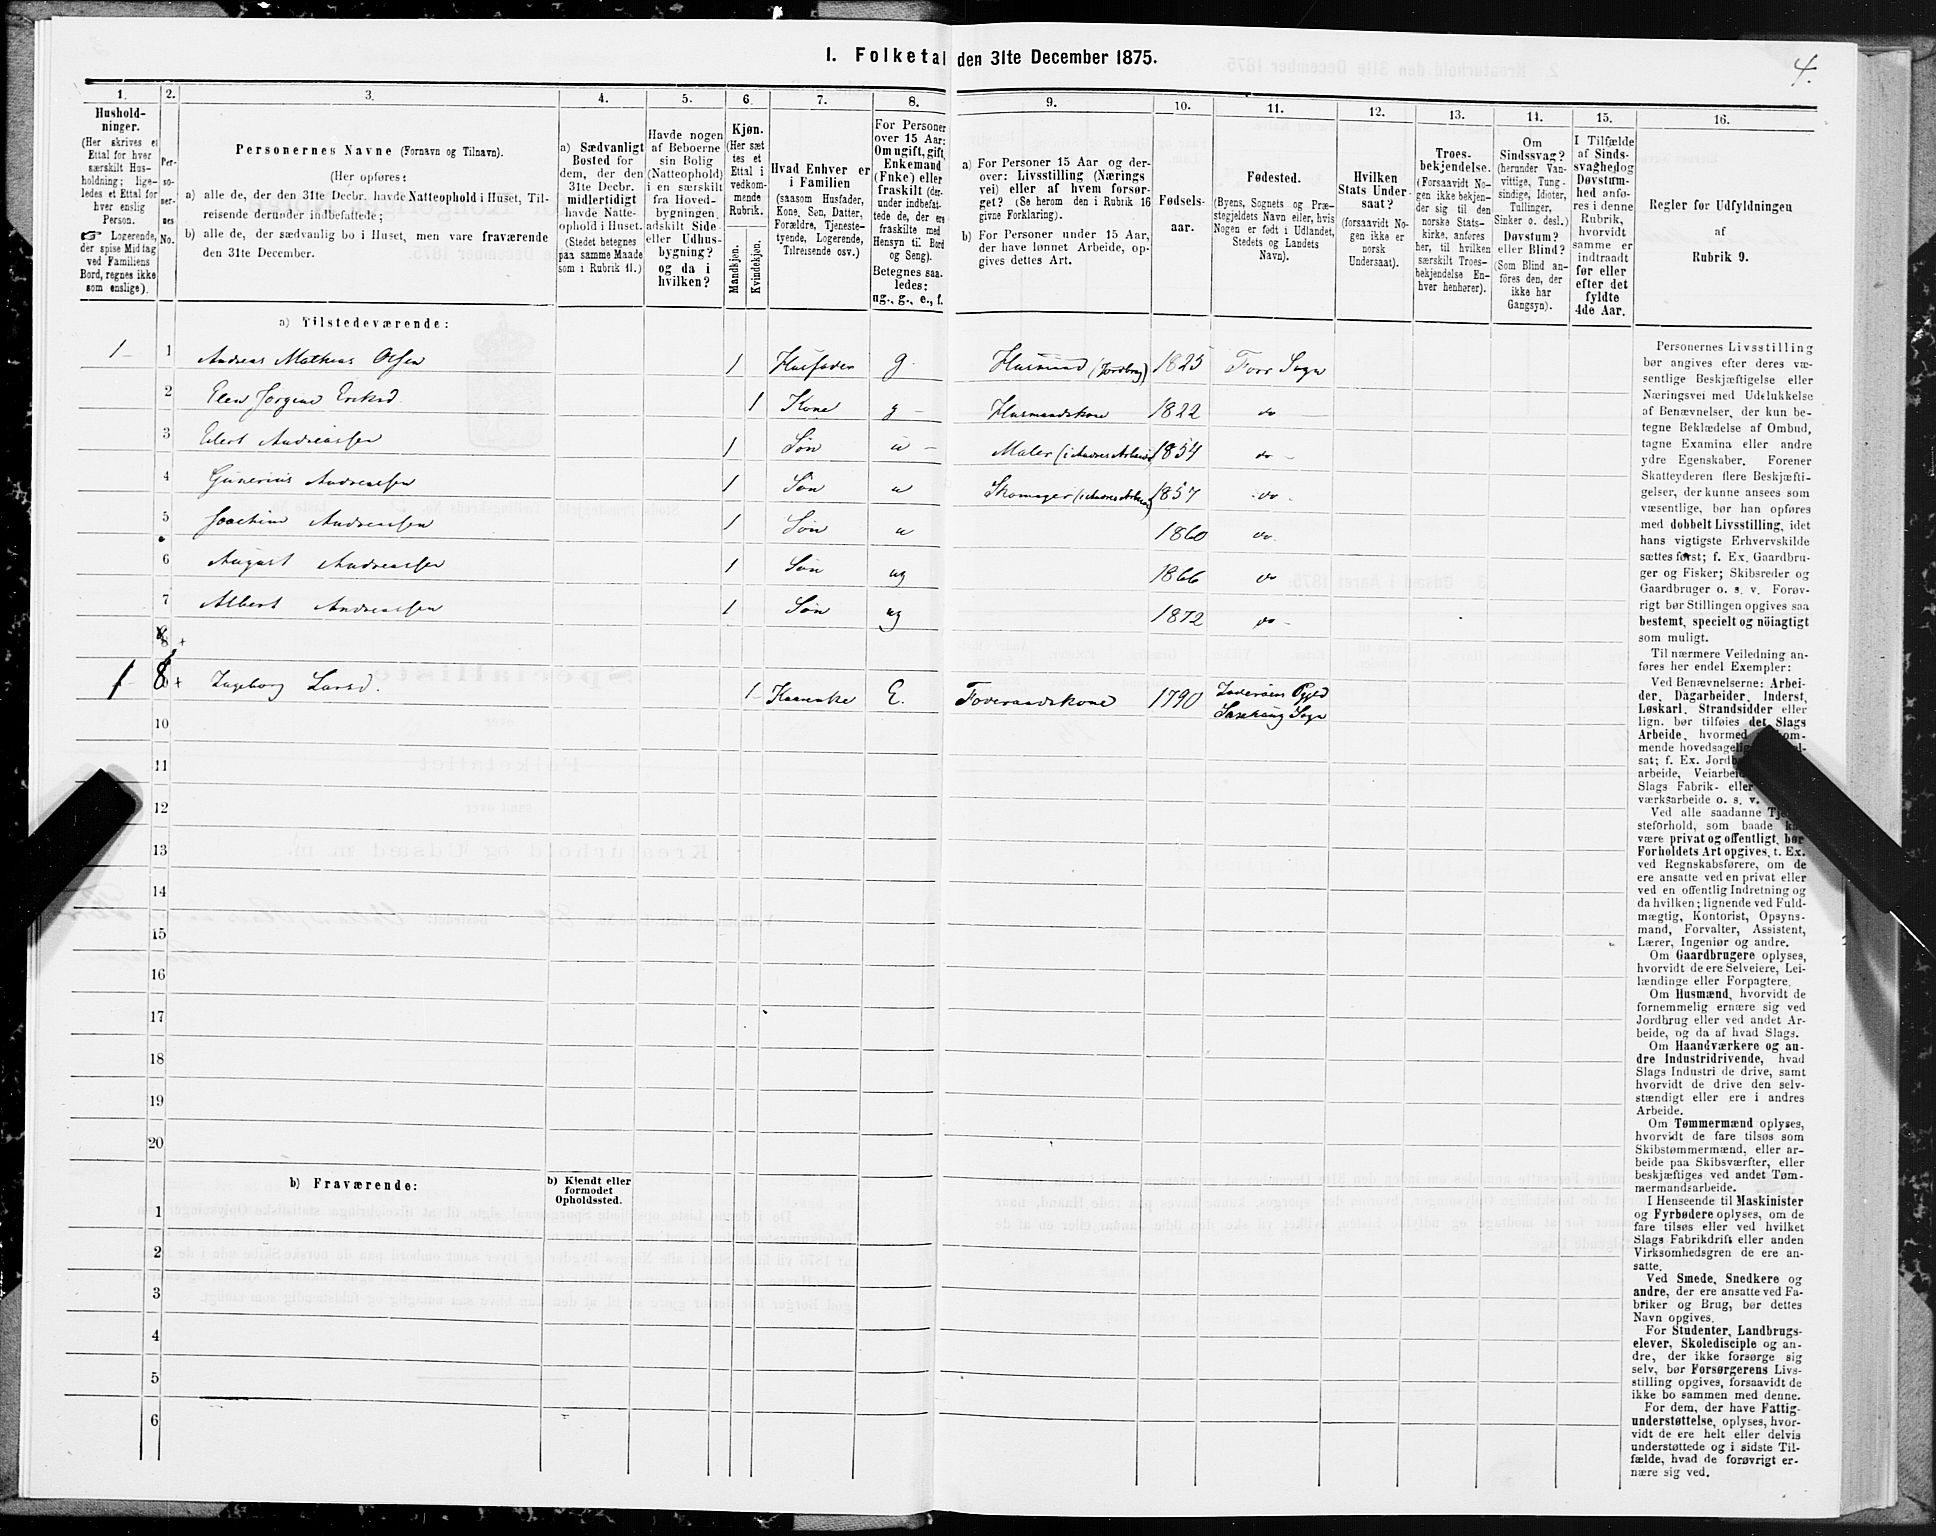 I. Folketal den 31te December 1875.
4.
1.
Hushold-
ninger.
(Her skrives et
Ettal for hver
særskilt Hus-
holdning; lige-
ledes et Ettal for
hver enslig
Person.
☞ Logerende,
der spise Middag
ved Familiens
Bord, regnes ikke
som enslige).
2.
Per-
so-
ner-
nes
No.
3.
Personernes Navne (Fornavn og Tilnavn).
(Her opføres:
a) alle de, der den 31te Decbr. havde Natteophold i Huset, Til-
reisende derunder indbefattede;
b) alle de, der sædvanlig bo i Huset, men vare fraværende
den 31te December.
4.
a) Sædvanligt
Bosted for
dem, der den
31te Decbr.
midlertidigt
havde Natte-
ophold i Huset.
(Stedet betegnes
paa samme Maade
som i Rubrik 11.)
5.
Havde nogen
af Beboerne
sin Bolig
(Natteophold)
i en særskilt
fra Hoved-
bygningen
adskilt Side-
eller Udhus-
bygning?
og da i
hvilken?
6.
Kjøn.
(Her sæt-
tes et
Ettal i
vedkom-
mende
Rubrik.
Mandkjøn.
Kvindekjøn.
7.
Hvad Enhver er
i Familien
(saasom Husfader,
Kone, Søn, Datter,
Forældre, Tjeneste-
tyende, Logerende,
Tilreisende osv.)
8.
For Personer
over 15 Aar:
Om ugift, gift,
Enkemand
(Enke) eller
fraskilt (der-
under indbefat-
tede de, der ere
fraskilte med
Hensyn til Bord
og Seng).
Betegnes saa-
ledes:
ug., g., e., f.
9.
a) For Personer 15 Aar og der-
over: Livsstilling (Nærings-
vei) eller af hvem forsør-
get? (Se herom den i Rubrik 16
givne Forklaring).
b) For Personer under 15 Aar,
der have lønnet Arbeide, op-
gives dettes Art.
10.
Fødsels-
aar.
11.
Fødested.
(Byens, Sognets og Præ-
stegjeldets Navn eller, hvis
Nogen er født i Udlandet,
Stedets og Landets
Navn).
12.
Hvilken
Stats Under-
saat?
(forsaavidt No-
gen ikke er
norsk
Undersaat).
13.
Troes-
bekjendelse.
(Forsaavidt No-
gen ikke bekjen-
der sig til den
norske Stats-
kirke, anføres
her, til hvilken
særskilt Troes-
bekjendelse En-
hver henhører).
14.
Om
Sindssvag?
(herunder Van-
vittige, Tung-
sindige, Idioter,
Tullinger,
Sinker o. desl.)
Døvstum?
eller Blind?
(Som Blind an-
føres den, der
ikke har
Gangsyn).
15.
I Tilfælde
af Sinds-
svaghed og
Døvstum-
hed anfø-
res i denne
Rubrik,
hvorvidt
samme er
indtraadt
før eller
efter det
fyldte
4de Aar.
16.
Regler for Udfyldningen
af
Rubrik 9.
a) Tilstedeværende:
1 1 Andreas Mathias Olsen 1 Husfader g. Husmand (Jordbrug) 1825 Forr Sogn
2 Elen Jørgine Eriksd 1 Kone g Husmandskone 1822 do
3 Edert Andreassen 1 Søn u Maler (i Andres Arbeide 1854 do
4 Gunerius Andreassen 1 Søn u Skomager (i Andres Arbeide) 1857 do
5 Joachim Andreassen 1 Søn u 1860 do
6 August Andreassen 1 Søn ug 1866 do
7 Albert Andreassen 1 Søn ug 1872 do
8
1 8 Ingeborg Larsd. 1 E. Foderaadskone 1790 Inderøens Pgjld
Sogn
10
11
12
13
14
15
16
17
18
19
20
b) Fraværende:
b) Kjendt eller
formodet
Opholdssted.
1
2
3
4
5
6
Personernes Livsstilling
bør angives efter deres væ-
sentlige Beskjæftigelse eller
Næringsvei med Udelukkelse
af Benævnelser, der kun be-
tegne Beklædelse af Ombud,
tagne Examina eller andre
ydre Egenskaber. Forener
Skatteyderen flere Beskjæfti-
gelser, der kunne ansees som
væsentlige, bør han opføres
med dobbelt Livsstilling, idet
hans vigtigste Erhvervskilde
sættes først; f. Ex. Gaardbru-
ger og Fisker; Skibsreder og
Gaardbruger o. s. v. Forøv-
rigt bør Stillingen opgives saa
bestemt, specielt og nöiagtigt
som muligt.
Til nærmere Veiledning an-
føres her endel Exempler:
Ved Benævnelserne: Arbei-
der, Dagarbeider, Inderst,
Løskarl, Strandsidder eller
lign. bør tilføies det Slags
Arbeide, hvormed
mende hovedsagelig
sat; f. Ex.
arbeide,
Slags Fabrik- eller
værksarbeide o. s. v.
Ved alle saadanne
steforhold, som baade
være privat og offentligt, bør
Forholdets Art opgives, t. Ex.
ved Regnskabsførere, om de
ere ansatte ved en privat eller
ved en offentlig Indretning og
da hvilken; lignende ved Fuld-
mægtig, Kontorist, Opsyns-
mand, Forvalter, Assistent,
Lærer, Ingeniør og andre.
Om Gaardbrugere oplyses,
hvorvidt de ere Selveiere, Lei-
lændinge eller Forpagtere.
Om Husmænd, hvorvidt de
fornemmelig ernære sig ved
Jordbrug eller ved andet Ar-
beide, og da af hvad Slags.
Om Haandværkere og an-
dre Industridrivende, hvad
Slags Industri de drive, samt
hvorvidt de drive den selv-
stændigt eller ere i andres
Arbeide.
Om Tømmermænd oplyses,
hvorvidt de fare tilsøs som
Skibstømmermænd, eller ar-
beide paa Skibsværfter, eller
beskjæftiges ved andet Tøm-
mermandsarbeide.
I Henseende til Maskinister
og Fyrbødere oplyses, om de
fare tilsøs eller ved hvilket
Slags Fabrikdrift eller anden
Virksomhedsgren de ere an-
satte.
Ved Smede, Snedkere og
andre, der ere ansatte ved Fa-
briker og Brug, bør dettes
Navn opgives.
For Studenter, Landbrugs-
elever, Skoledisciple og an-
dre, der ikke forsørge sig
selv, bør Forsørgerens Livs-
stilling opgives, forsaavidt de
ikke bo sammen med denne.
For dem, der have Fattig-
understøttelse, oplyses, hvor-
vidt de ere helt eller delvis
understøttede og i sidste Til-
fælde, hvad de forøvrigt er-
nære sig ved.